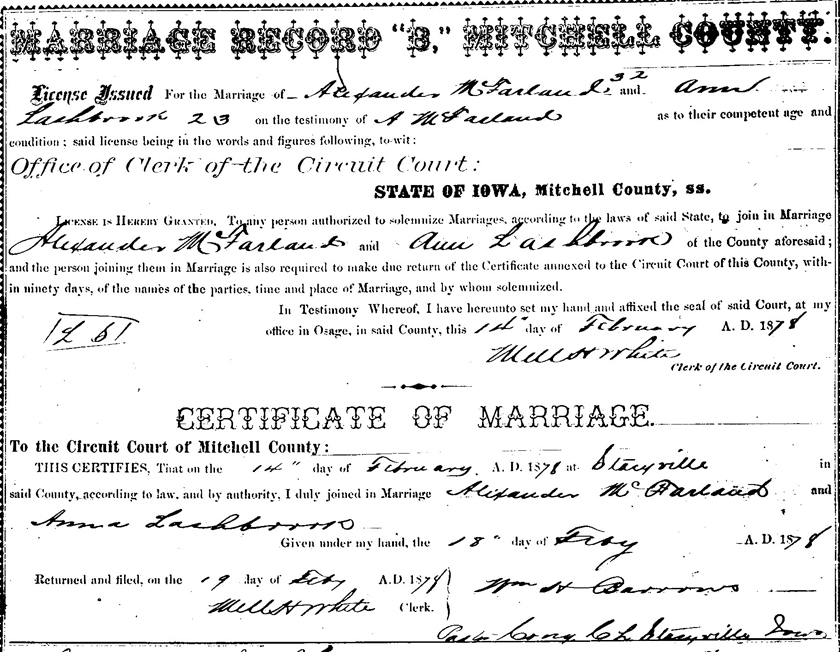 MARRIAGE RECORD "B," MITCHELL COUNTY.
License Issued For the Marriage of Alexander McFarland 32 and Ann
Lashbrook 23 on the testimony of A McFarland as to their competent age and
condition; said license being in the words and figures following, to-wit:
Office of Clerk of the Circuit Court:
STATE OF IOWA, Mitchell County, ss.
LICENSE IS HEREBY GRANTED, To any person authorized to solemnize Marriages, according to the laws of said State, to join in Marriage
Alexander McFarland and Ann Lashbrook of the County aforesaid;
and the person joining them in Marriage is also required to make due return of the Certificate annexed to the Circuit Court of this County, with-
in ninety days, of the names of the parties, time and place of Marriage, and by whom solemnized.
In Testimony Whereof, I have hereunto set my hand and affixed the seal of said Court, at my
office in Osage, in said County, this 14" day of February A. D. 1878
Will H White
Clerk of the Circuit Court.
CERTIFICATE OF MARRIAGE.
To the Circuit Court of Mitchell County:
THIS CERTIFIES, That on the 14" day of February A. D. 1878 at Stacyville in
said County, according to law, and by authority, I duly joined in Marriage Alexander McFarland and
Anna Lashbrook
Given under my hand, the 18" day of Feby A. D. 1878
Returned and filed, on the 19 day of Feby A.D. 1878 Wm H Barrows
Will H White Clerk.
Pastor Cong Ch Stacyville Iowa